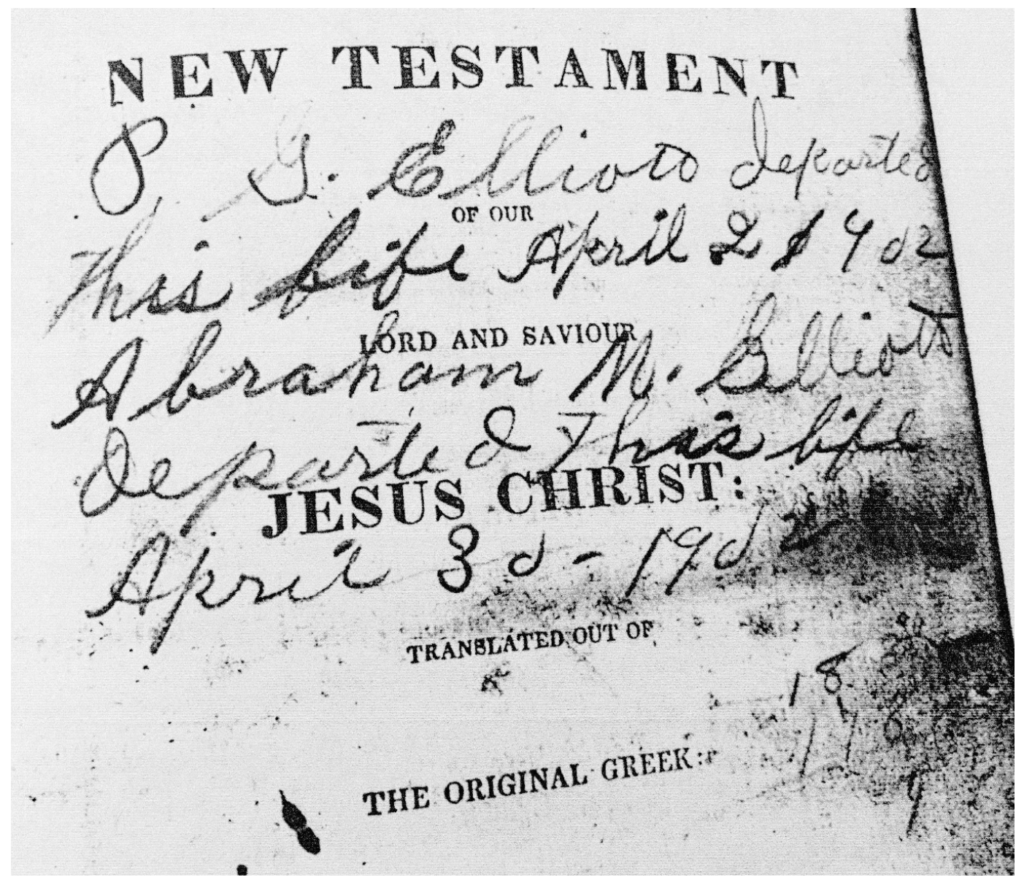 NEW TESTAMENT
P. G. Elliott departed
OF OUR
this life April 2 1902
LORD AND SAVIOUR
Abraham M. Elliott
Departed this life
JESUS CHRIST:
April 30 - 1902
TRANSLATED OUT OF
THE ORIGINAL GREEK: